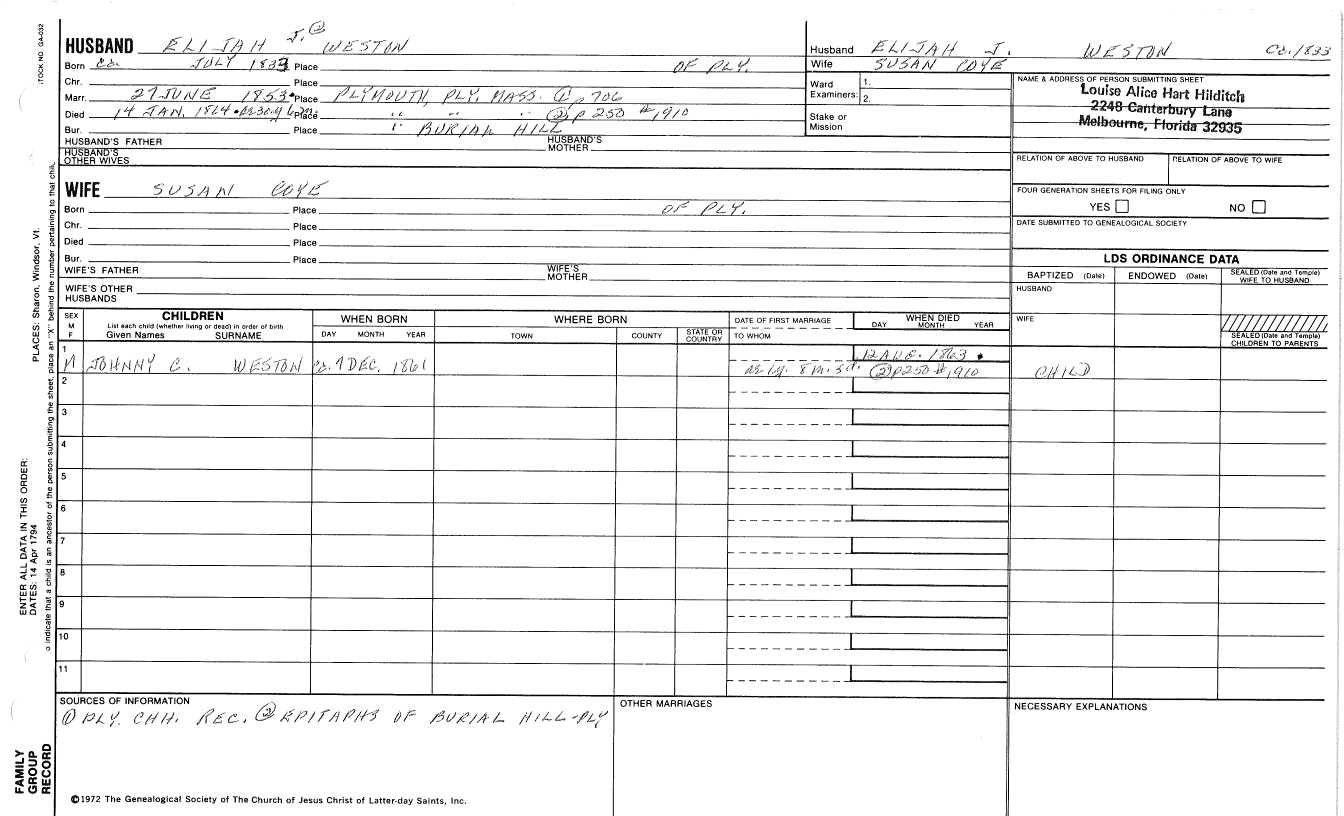 HUSBAND ELIJAH J. ② WESTON
Born Ca. JULY 1833 Place OF PLY.
Chr. Place
Marr. 27 JUNE 1853 • Place PLYMOUTH, PLY. MASS. ① p 706
Died 14 JAN. 1864 • Place " " " ② p 250 #1,910
Bur. Place " BURIAL HILL
HUSBAND'S FATHER HUSBAND'S MOTHER
HUSBAND'S OTHER WIVES
WIFE SUSAN COYE
Born Place OF PLY.
Chr. Place
Died Place
Bur. Place
WIFE'S FATHER WIFE'S MOTHER
WIFE'S OTHER HUSBANDS
Husband ELIJAH J. WESTON Ca. 1833
Wife SUSAN COYE
Ward Examiners: 1. 2.
Stake or Mission
NAME & ADDRESS OF PERSON SUBMITTING SHEET
Louise Alice Hart Hilditch
2248 Canterbury Lane
Melbourne, Florida 32935
RELATION OF ABOVE TO HUSBAND RELATION OF ABOVE TO WIFE
FOUR GENERATION SHEETS FOR FILING ONLY
YES NO
DATE SUBMITTED TO GENEALOGICAL SOCIETY
LDS ORDINANCE DATA
BAPTIZED (Date) ENDOWED (Date) SEALED (Date and Temple) WIFE TO HUSBAND
HUSBAND
WIFE
SEALED (Date and Temple) CHILDREN TO PARENTS
SEX M F
CHILDREN
List each child (whether living or dead) in order of birth
Given Names SURNAME
WHEN BORN
DAY MONTH YEAR
WHERE BORN
TOWN COUNTY STATE OR COUNTRY
DATE OF FIRST MARRIAGE
TO WHOM
WHEN DIED
DAY MONTH YEAR
1 M JOHNNY C. WESTON Ca. 9 DEC. 1861 12 AUG. 1863 •
ae 1y. 8 m. 3 d. ② p 250 #1,910 CHILD
2
3
4
5
6
7
8
9
10
11
SOURCES OF INFORMATION
① PLY. CHH. REC. ② EPITAPHS OF BURIAL HILL-PLY
OTHER MARRIAGES
NECESSARY EXPLANATIONS
©1972 The Genealogical Society of The Church of Jesus Christ of Latter-day Saints, Inc.
FAMILY GROUP RECORD
ENTER ALL DATA IN THIS ORDER:
DATES: 14 Apr 1794
PLACES: Sharon, Windsor, Vt.
o indicate that a child is an ancestor of the person submitting the sheet, place an "X" behind the number pertaining to that chil
TOCK NO. GA-032